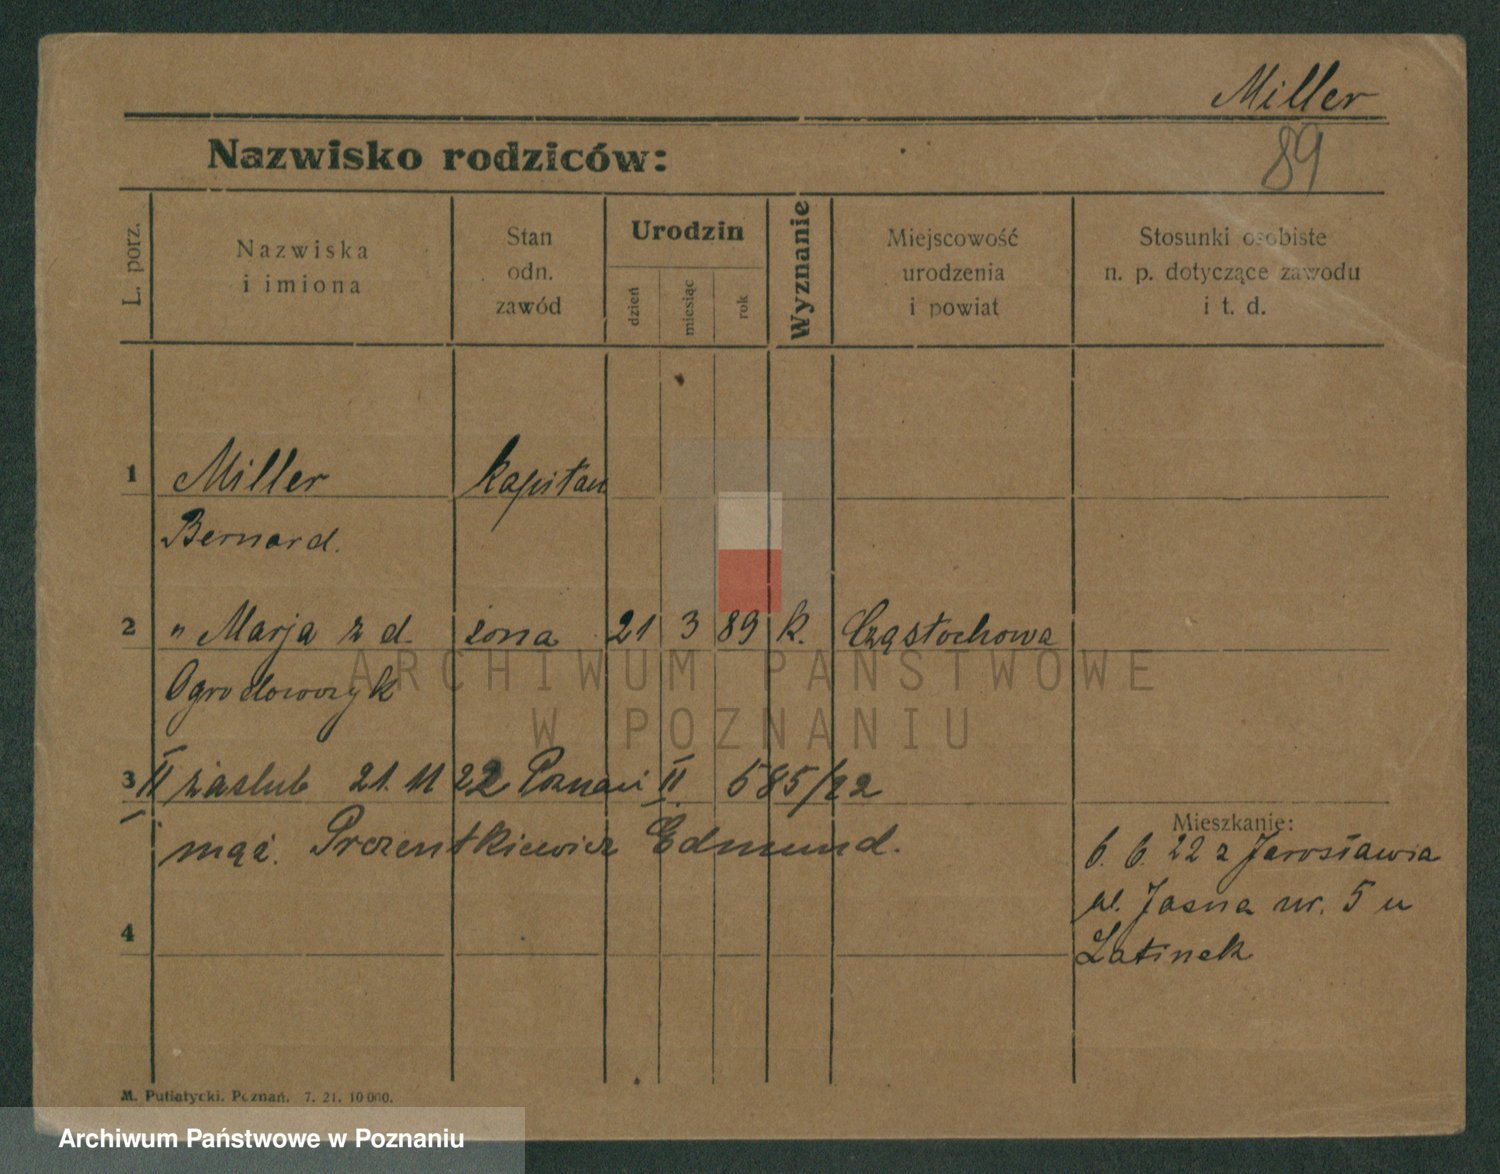 Miller
89
Nazwisko rodziców:
L. porz.
Nazwiska
i imiona
Stan
odn.
zawód
Urodzin
dzień
miesiąc
rok
Wyznanie
Miejscowość
urodzenia
i powiat
Stosunki osobiste
n. p. dotyczące zawodu
i t. d.
1 Miller kapitan
Bernard.
2 „ Marja z d. żona 21 3 89 k. Częstochowa
Ogrodowczyk
3 II zaslub 21. 11 22 Poznań II 585/22
mąż. Przentkiewicz Edmund.
Mieszkanie:
6. 6. 22 z Jarosławia
ul. Jasna nr. 5 u
Latinek
4
ARCHIWUM PAŃSTWOWE
W POZNANIU
M. Putiatycki. Poznań. 7. 21. 10 000.
Archiwum Państwowe w Poznaniu